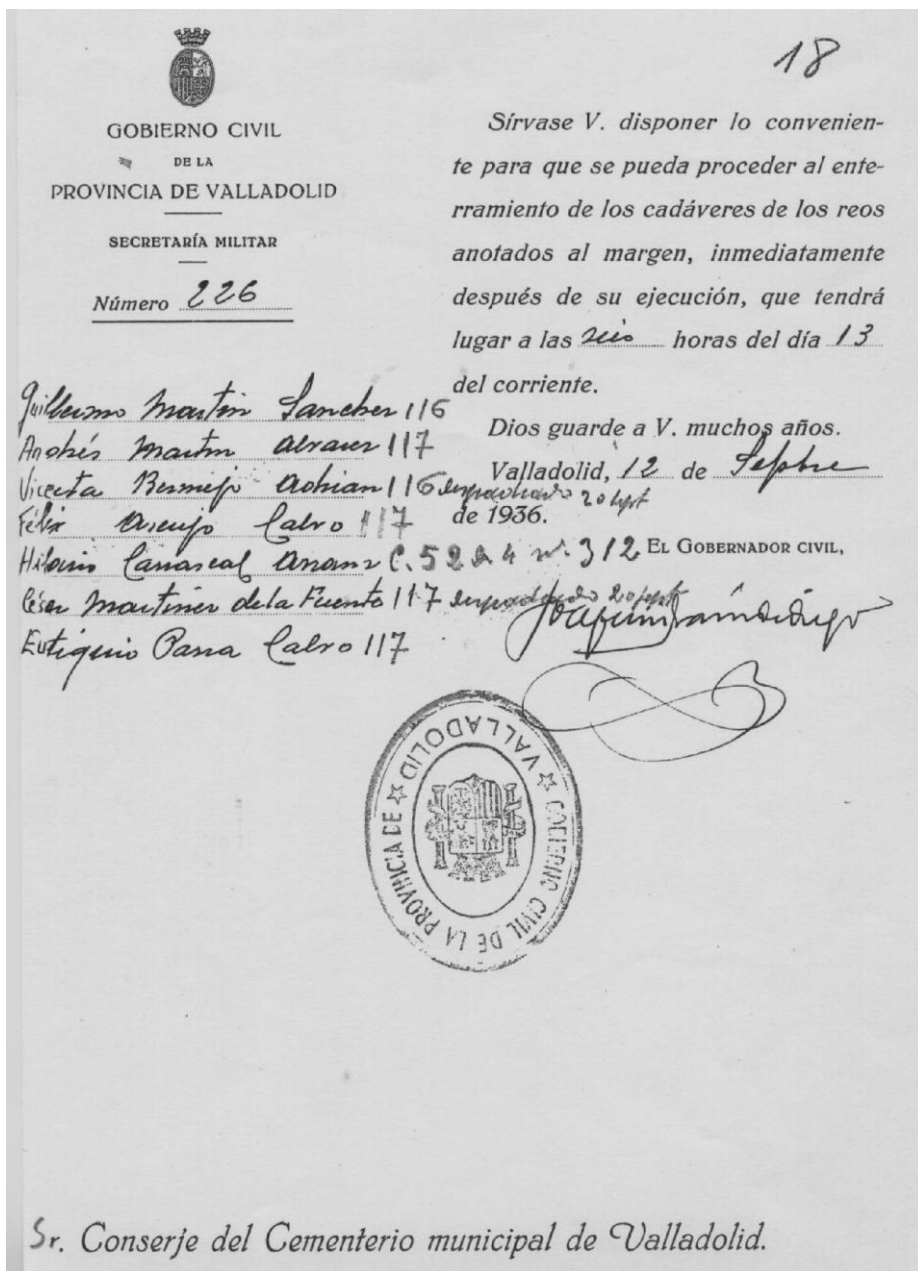 18
GOBIERNO CIVIL
DE LA
PROVINCIA DE VALLADOLID
SECRETARÍA MILITAR
Número 226
Sírvase V. disponer lo convenien-
te para que se pueda proceder al ente-
rramiento de los cadáveres de los reos
anotados al margen, inmediatamente
después de su ejecución, que tendrá
lugar a las seis horas del día 13
del corriente.
Dios guarde a V. muchos años.
Valladolid, 12 de Sepbre
de 1936.
EL GOBERNADOR CIVIL,
Guillermo Martin Sanchez 116
Andrés Martin 117
Vicenta Bermejo Adrian 116 20 Sept
Félix Araujo Calvo 117
Hilario Carrascal C. 52 a 4 nº. 312
César Martinez de la Fuente 117 20 sept
Eutiquio Parra Calvo 117
GOBIERNO CIVIL DE LA PROVINCIA DE VALLADOLID
Sr. Conserje del Cementerio municipal de Valladolid.